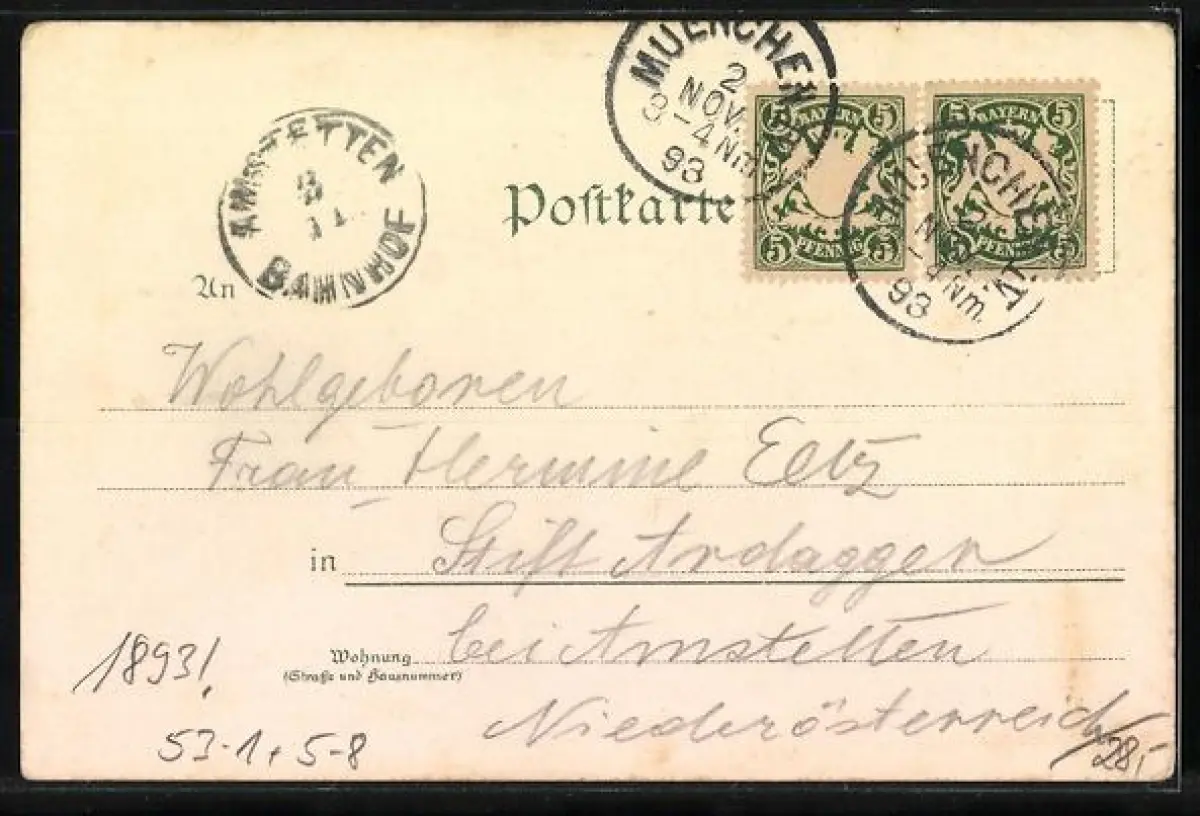 MUENCHEN
2
NOV.
3-4 Nm.
93
5 BAYERN 5
5 PFENNIG 5
5 BAYERN 5
5 PFENNIG 5
MUENCHEN VI.
NOV.
-4 Nm.
93
AMSTETTEN
3
11
BAHNHOF
Postkarte
An
Wohlgeboren
Frau Hermine Eltz
in Stift Ardagger
Wohnung bei Amstetten
(Straße und Hausnummer)
Niederösterreich
1893!
53-1+5-8
28,-